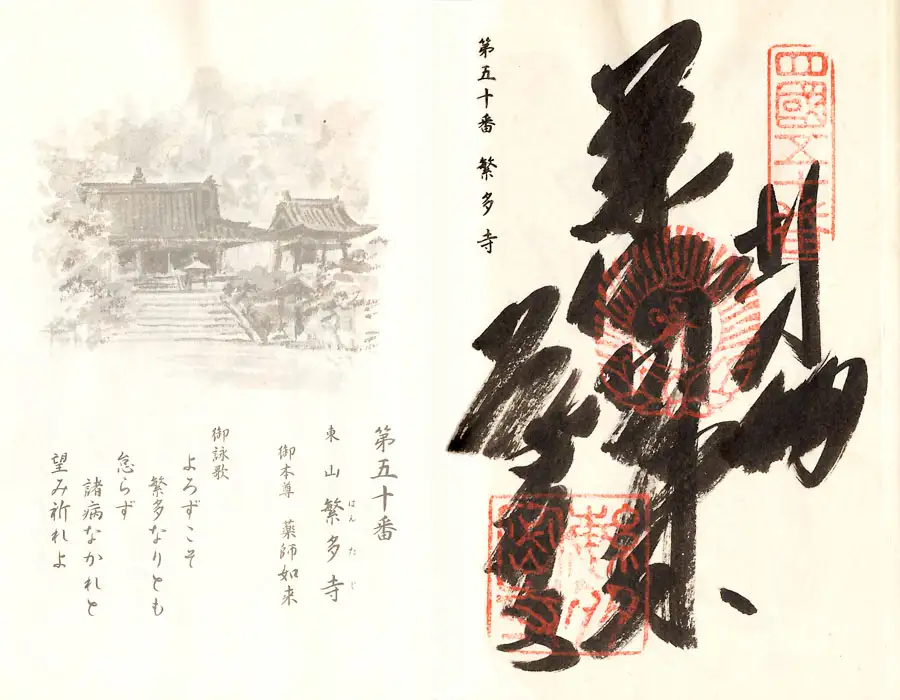 四國五十番
奉納
第五十番 繁多寺
第五十番
東山 繁多寺
はんたじ
御本尊 薬師如来
御詠歌
よろずこそ
繁多なりとも
怠らず
諸病なかれと
望み祈れよ